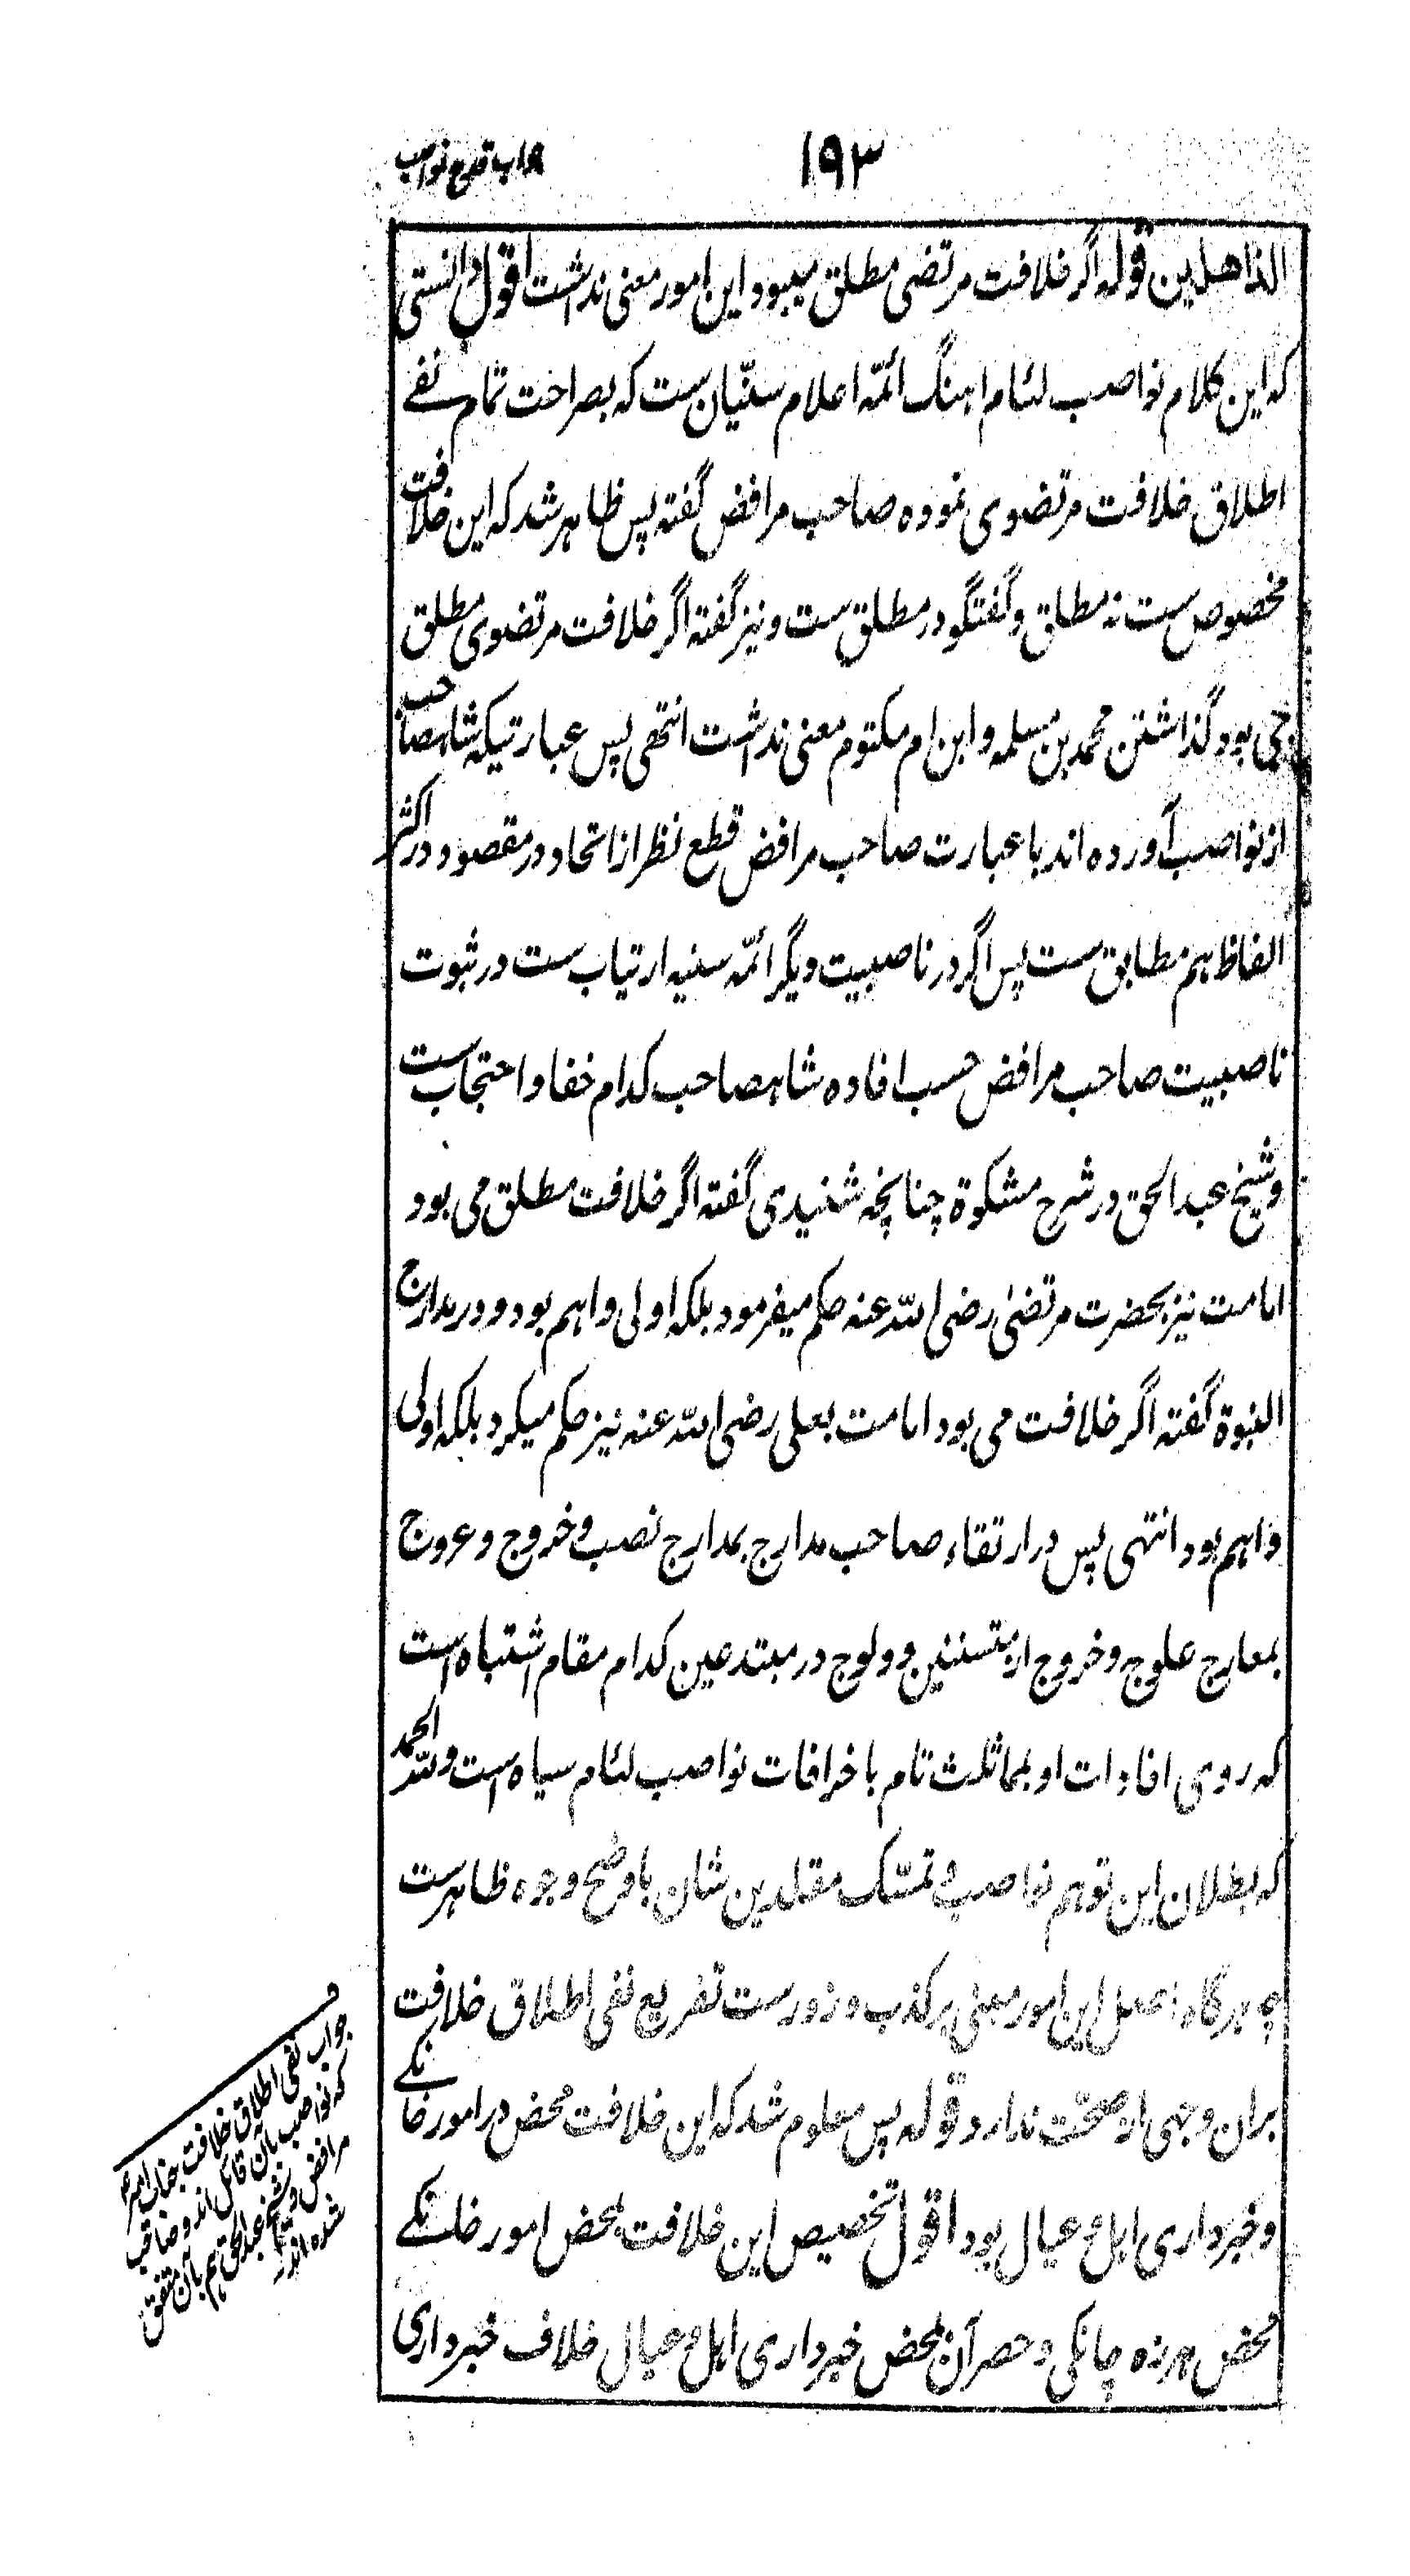 ۱۹۳
الذاهلین قوله اگر خلافت مرتضی مطلق میبود این امور معنی نداشت اقول دانستی
که این کلام نواصب لئام اهنگ ائمّه اعلام سنّیان ست که بصراحت تمام نفے
اطلاق خلافت مرتضوی نموده صاحب مرافض گفته پس ظاهر شد که این خلافت
مخصوص ست نه مطلق و گفتگو در مطلق ست و نیز گفته اگر خلافت مرتضوی مطلق
می بود گذاشتن محمد بن مسلمه و ابن ام مکتوم معنی نداشت انتهی پس عبارتیکه شاهصاحب
از نواصب آورده اند با عبارت صاحب مرافض قطع نظر از اتحاد در مقصود در اکثر
الفاظ هم مطابق ست پس اگر در ناصبیت دیگر ائمّه سنیه ارتیاب ست در ثبوت
ناصبیت صاحب مرافض حسب افاده شاهصاحب کدام خفا و احتجاب ست
و شیخ عبد الحق در شرح مشکوة چنانچه شنیدی گفته اگر خلافت مطلق می بود
امامت نیز بحضرت مرتضیٰ رضی الله عنه حکم میفرمود بلکه اولی و اهم بود و در مدارج
النبوة گفته اگر خلافت می بود امامت بعلی رضی الله عنه نیز حکم میکرد بلکه اولی
و اهم بود انتهی پس در ارتقاء صاحب مدارج بمدارج نصب و خروج و عروج
بمعارج علوج و خروج از متسننین و ولوج در مبتدعین کدام مقام اشتباه است
که روی افادات او بمماثلث تام با خرافات نواصب لئام سیاه است و لله الحمد
که بطلان این توهم نواصب و تمسّک مقلدین شان باوضح وجوه ظاهرست
چه هرگاه اصل این امور مبنی بر کذب و زورست تفریع نفی اطلاق خلافت
بران وجهی از صحّت ندارد قوله پس معلوم شد که این خلافت محض در امور خانگے
و خبرداری اهل و عیال بود اقول تخصیص این خلافت بمحض امور خانگے
محض هرزه چانگی و حصر آن بمحض خبرداری اهل و عیال خلاف خبرداری
جواب نفی اطلاق خلافت جناب امیر ع
که نواصب بآن قائل اند و صاحب
مرافض و شیخ عبد الحق هم بآن متفق
شده اند